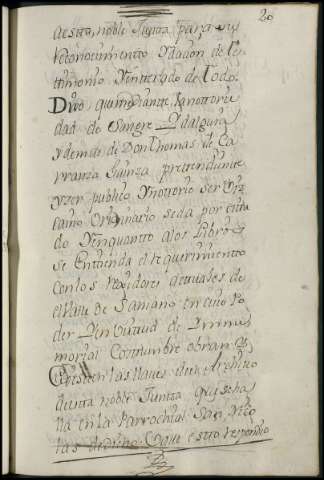 20
aesta, noble Junta para su
reconocimiento Ydacion de tes
timonio Yenterado de todo.
Dixo quimediante, lanottorie
dad de Sangre Ydalguia
Ydemas de Don Thomas de Ca
rranza Quinza pretendiente
Yser publico Ynottorio ser Viz
caino Originario seda por cita
do Yenquantto alos Libros
se Entienda el requerimiento
conlos rexidores actuales de
el Valle de Samano en cuio Po
der Yen virtud de Ynme
morial Costumbre obran Y
existen las llaves del Archivo
de esta noble Juntta que se ha
lla en la Parrochial San Nico
las Yque esto respondio